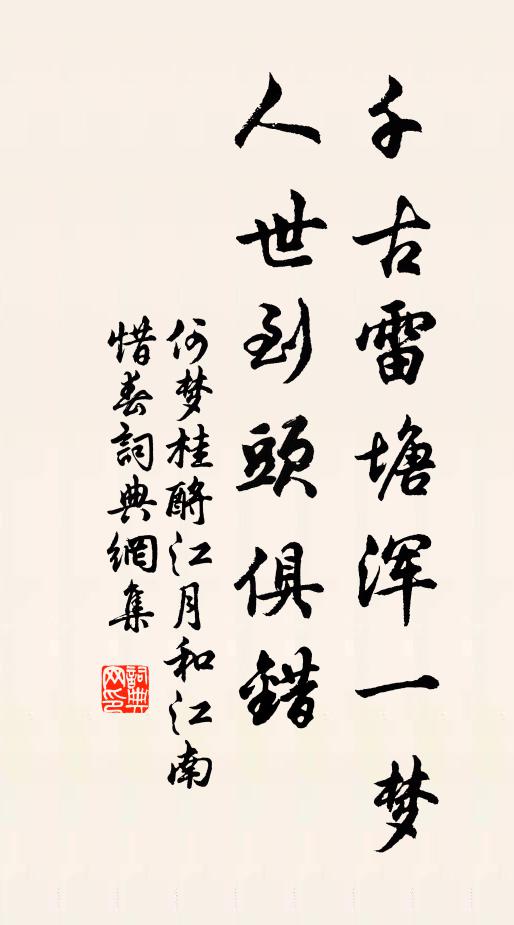 千古雷塘浑一梦
人世到頭俱錯
何梦桂酹江月和江南
惜春詞典網集
詞典网印